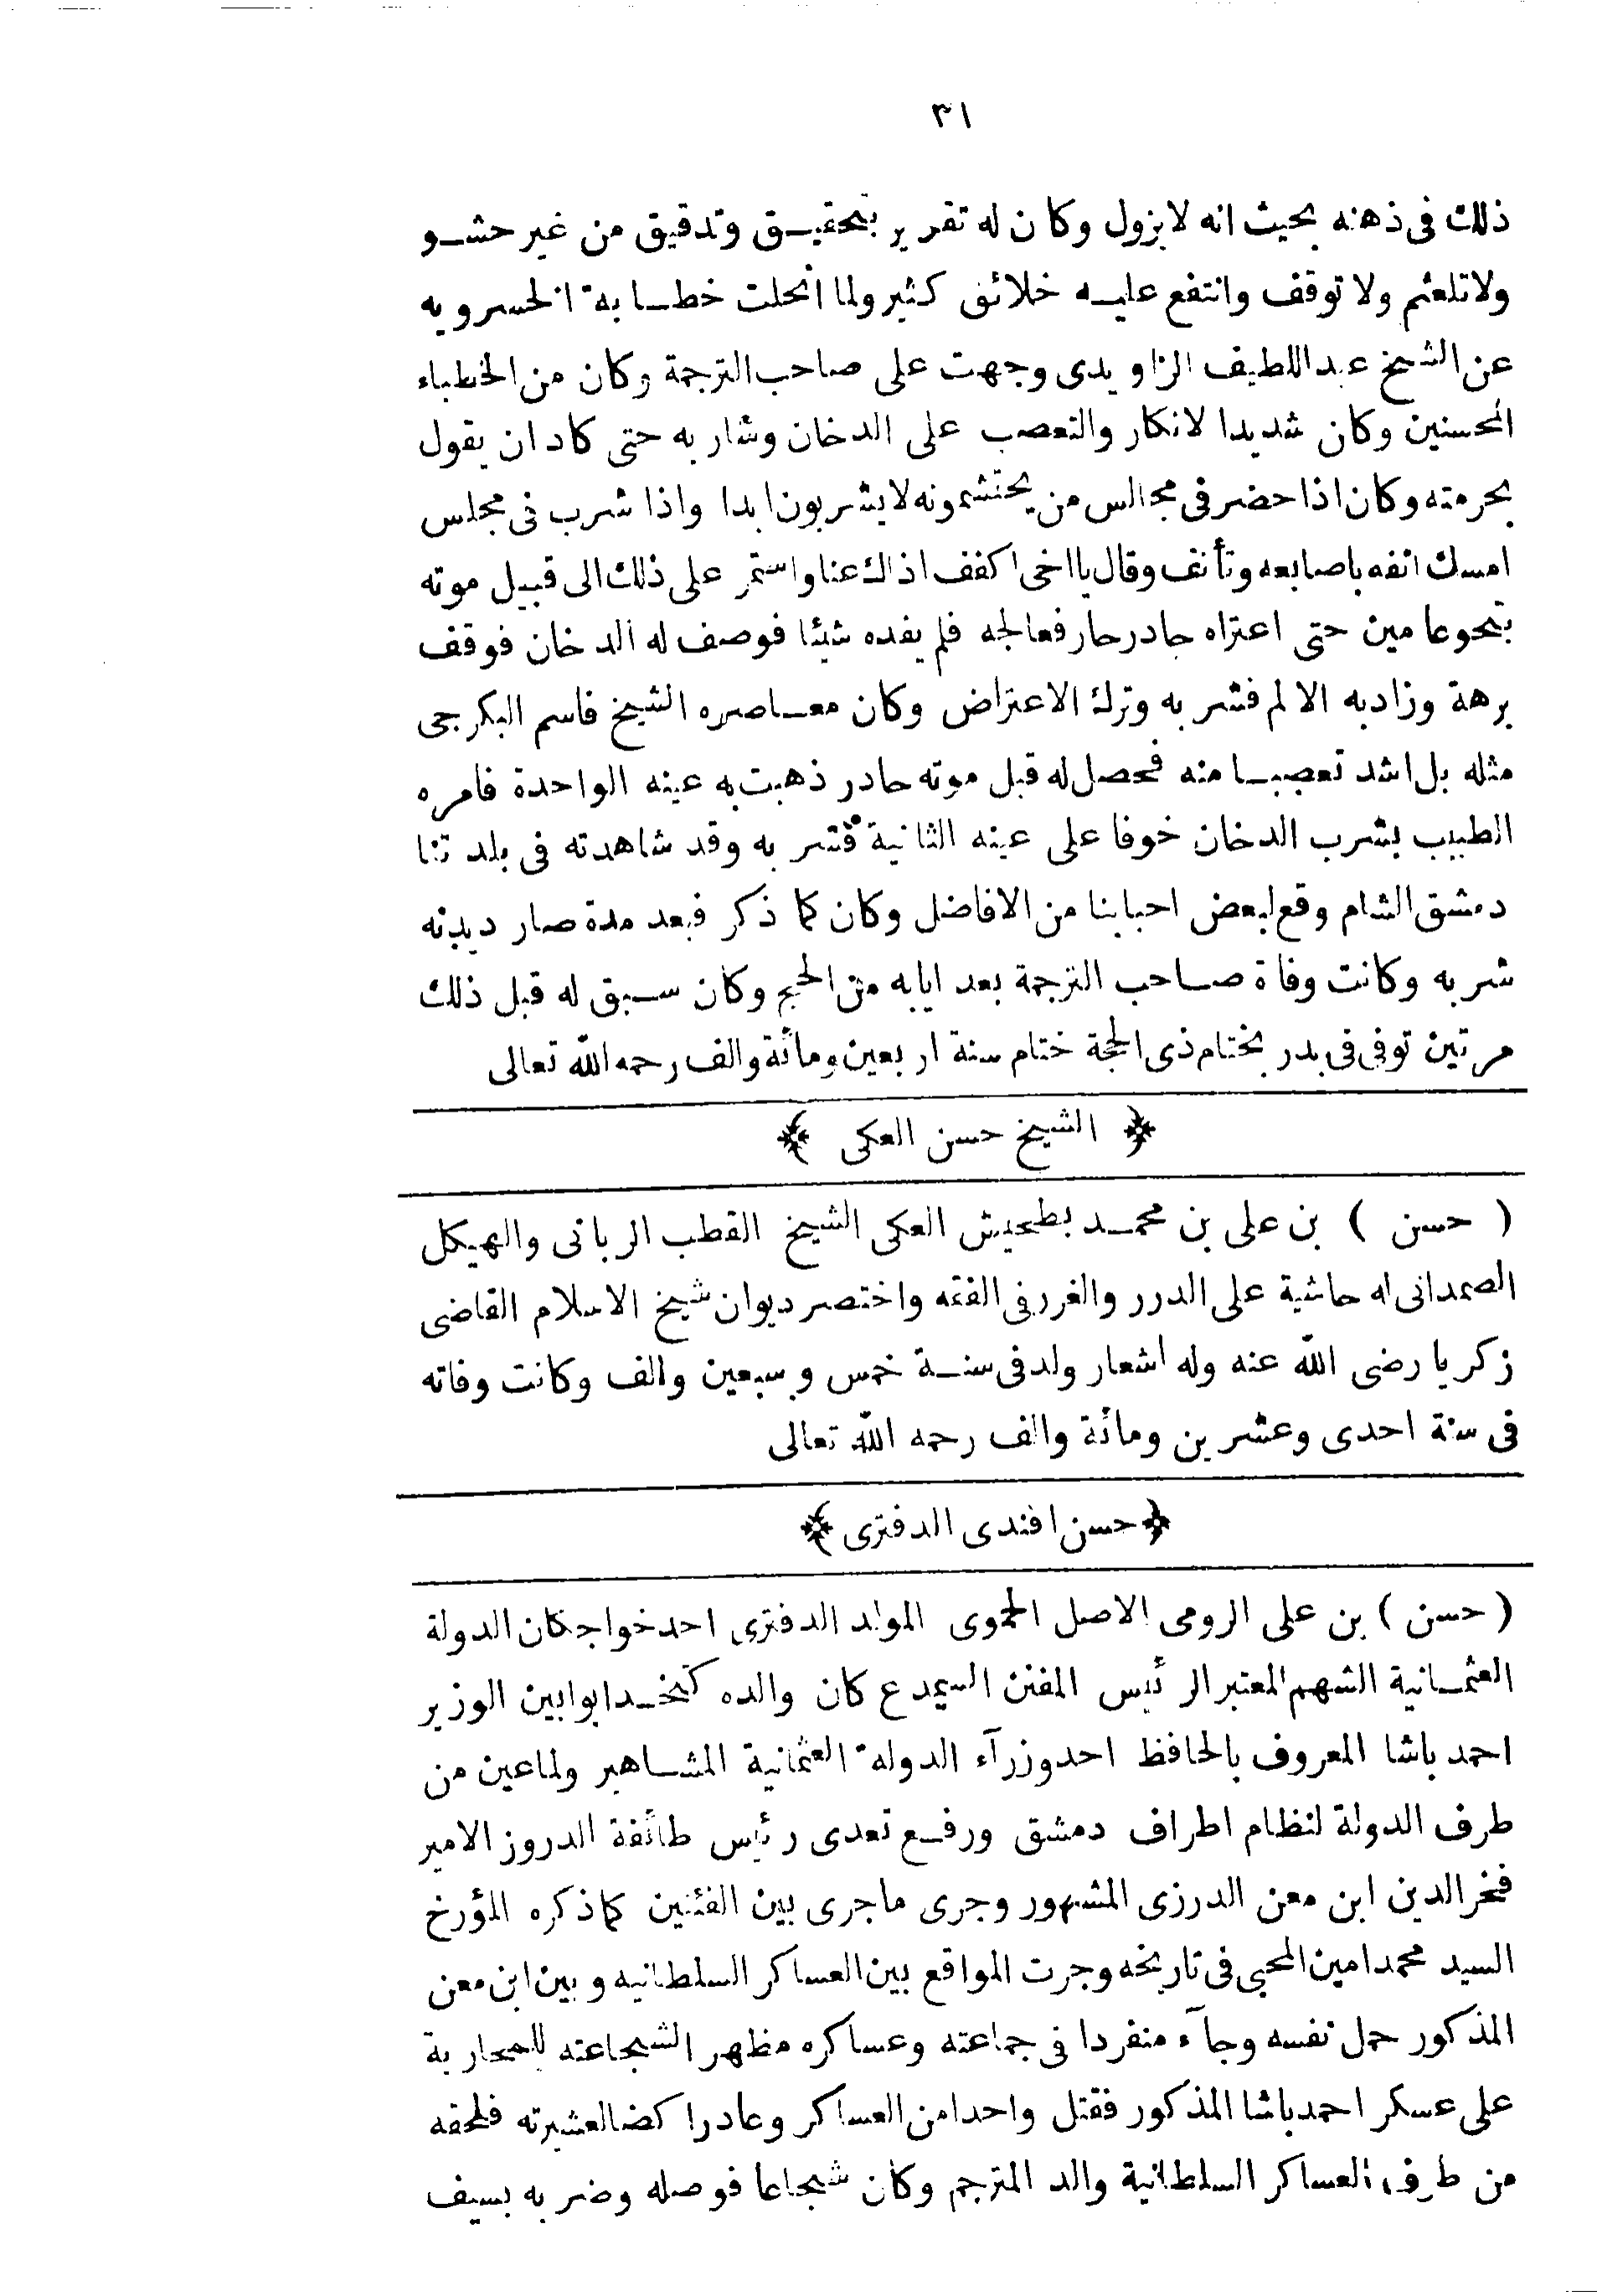 ٣١
ذلك فى ذهنه بحيث انه لا يزول وكان له تقرير بتحقيق وتدقيق من غير حشو
ولا تلعثم ولا توقف وانتفع عليه خلائق كثير ولما انحلت خطابة الخسرويه
عن الشيخ عبد اللطيف الزاويدى وجهت على صاحب الترجمة وكان من الخطباء
المحسنين وكان شديدا لانكار والتعصب على الدخان وشاربه حتى كاد ان يقول
بحرمته وكان اذا حضر فى مجالس من يحتشمونه لا يشربون ابدا واذا شرب فى مجلس
امسك انفه باصابعه وتأنف وقال يا اخى اكفف اذاك عنا واستمر على ذلك الى قبيل موته
بنحو عامين حتى اعتراه حادر حار فعالجه فلم يفده شيئا فوصف له الدخان فوقف
برهة وزاد به الالم فشربه وترك الاعتراض وكان معاصره الشيخ قاسم البكرجى
مثله بل اشد تعصبا منه فحصل له قبل موته حادر ذهبت به عينه الواحدة فامره
الطبيب بشرب الدخان خوفا على عينه الثانية فشربه وقد شاهدته فى بلدتنا
دمشق الشام وقع لبعض احبابنا من الافاضل وكان كما ذكر فبعد مدة صار ديدنه
شربه وكانت وفاة صاحب الترجمة بعد ايابه من الحج وكان سبق له قبل ذلك
مرتين توفى فى بدر بختام ذى الحجة ختام سنة اربعين ومائة والف رحمه الله تعالى
﴿ الشيخ حسن العكى ﴾
( حسن ) بن على بن محمد بطحيش العكى الشيخ القطب الربانى والهيكل
الصمدانى له حاشية على الدرر والغرر فى الفقه واختصر ديوان شيخ الاسلام القاضى
زكريا رضى الله عنه وله اشعار ولد فى سنة خمس وسبعين والف وكانت وفاته
فى سنة احدى وعشرين ومائة والف رحمه الله تعالى
﴿ حسن افندى الدفترى ﴾
( حسن ) بن على الرومى الاصل الحموى المولد الدفترى احد خواجكان الدولة
العثمانية الشهم المعتبر الرئيس المفنن السميدع كان والده كتخدا بوابين الوزير
احمد باشا المعروف بالحافظ احد وزرآء الدولة العثمانية المشاهير ولما عين من
طرف الدولة لنظام اطراف دمشق ورفع تعدى رئيس طائفة الدروز الامير
فخر الدين ابن معن الدرزى المشهور وجرى ماجرى بين الفئتين كما ذكره المؤرخ
السيد محمد امين المحبى فى تاريخه وجرت المواقع بين العساكر السلطانيه وبين ابن معن
المذكور حمل نفسه وجآء منفردا فى جماعته وعساكره مظهر الشجاعته للمحاربة
على عسكر احمد باشا المذكور فقتل واحدا من العساكر وعاد راكضا لعشيرته فلحقه
من طرف العساكر السلطانية والد المترجم وكان شجاعا فوصله وضربه بسيف